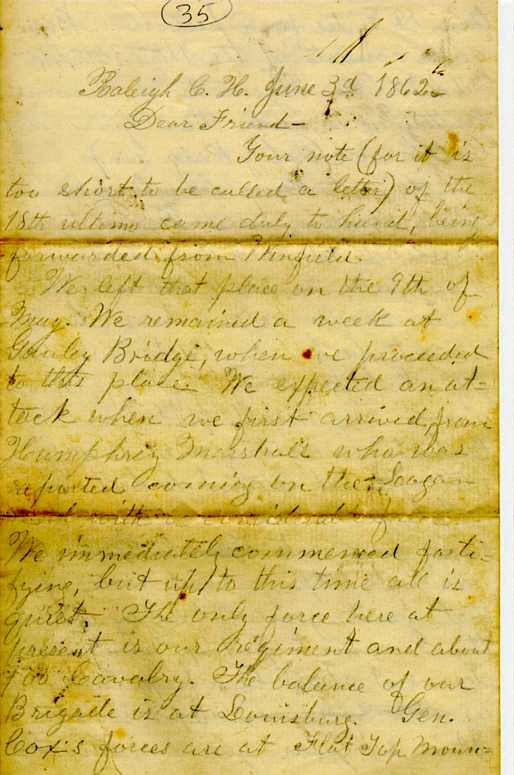 35
Raleigh C. H. June 3d 1862
Dear Friend —
Your note (for it is
too short to be called a letter) of the
18th ultimo came duly to hand, being
forwarded from Winfield.
We left that place on the 9th of
May. We remained a week at
Gauley Bridge, when we proceeded
to this place. We expected an at-
tack when we first arrived from
Humphrey Marshall who was
reported coming on the Logan
road with a considerable force
We immediately commenced forti-
fying, but up to this time all is
quiet. The only force here at
present is our Regiment and about
Cavalry. The balance of our
Brigade is at Louisburg. Gen.
Cox's forces are at Flat Top Moun-